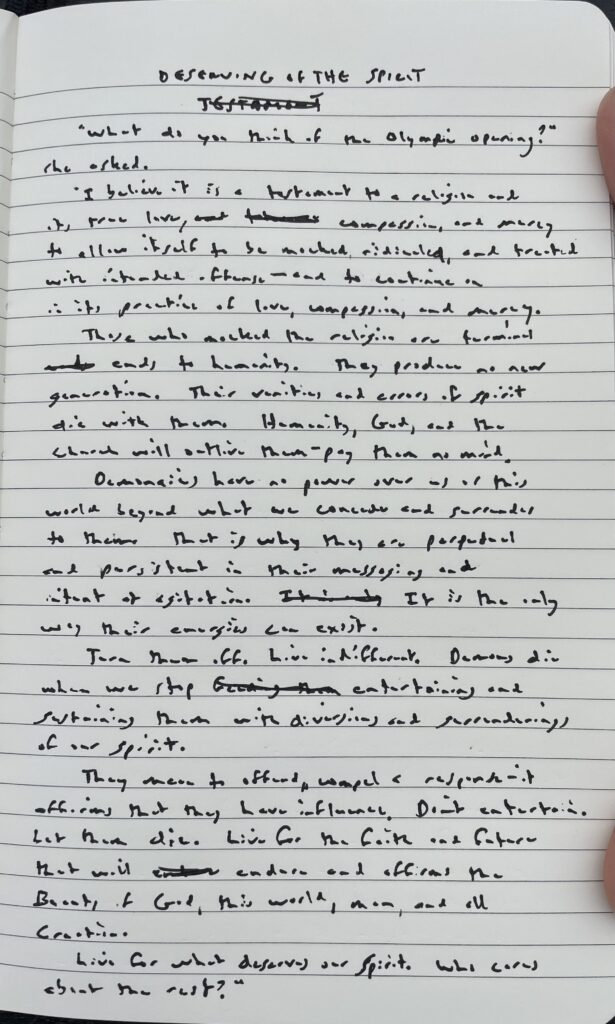 DESERVING OF THE SPIRIT
TESTAMENT
"What do you think of the Olympic opening?"
she asked.
"I believe it is a testament to a religion and
its true love, and compassion, and mercy
to allow itself to be mocked, ridiculed, and treated
with intended offense—and to continue on
in its practice of love, compassion, and mercy.
Those who mocked the religion are terminal
ends to humanity. They produce no new
generation. Their vanities and errors of spirit
die with them. Humanity, God, and the
church will outlive them—pay them no mind.
Demonais have no power over us or this
world beyond what we concede and surrender
to them. That is why they are perpetual
and persistent in their messaging and
intent of agitation. It is only It is the only
way their energies can exist.
Turn them off. Live indifferent. Demons die
when we stop feeding them entertaining and
sustaining them with diversions and surrenderings
of our spirit.
They mean to offend, compel a response—it
affirms that they have influence. Don't entertain.
Let them die. Live for the faith and future
that will endure and affirms the
Beauty of God, this world, man, and all
Creation.
Live for what deserves our spirit. Who cares
about the rest?"